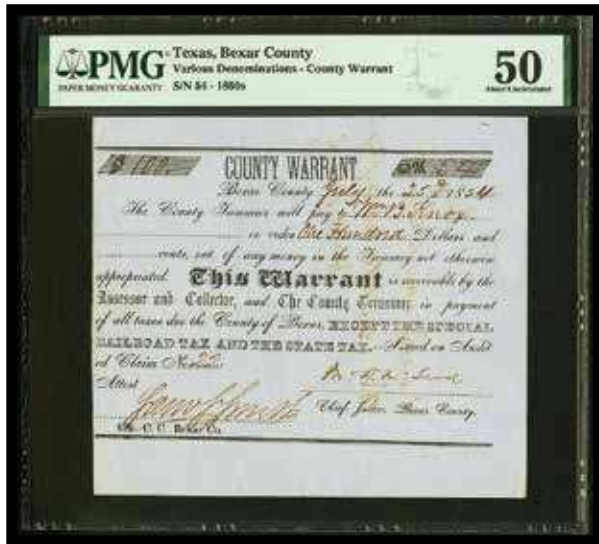 PMG Texas, Bexar County
Various Denominations - County Warrant
PAPER MONEY GUARANTY S/N 84 - 1850s
50
About Uncirculated
$ 100 COUNTY WARRANT
Bexar County July the 25 1854
The County Treasurer will pay to
or order One Hundred Dollars and
cents, out of any money in the Treasury not otherwise
appropriated. This Warrant is receivable by the
Assessor and Collector, and The County Treasurer in payment
of all taxes due the County of Bexar, EXCEPT THE SPECIAL
RAILROAD TAX AND THE STATE TAX. Issued on Audit
ed Claim No
Attest
Chief Justice Bexar County.
Clk. C. C. Bexar Co.